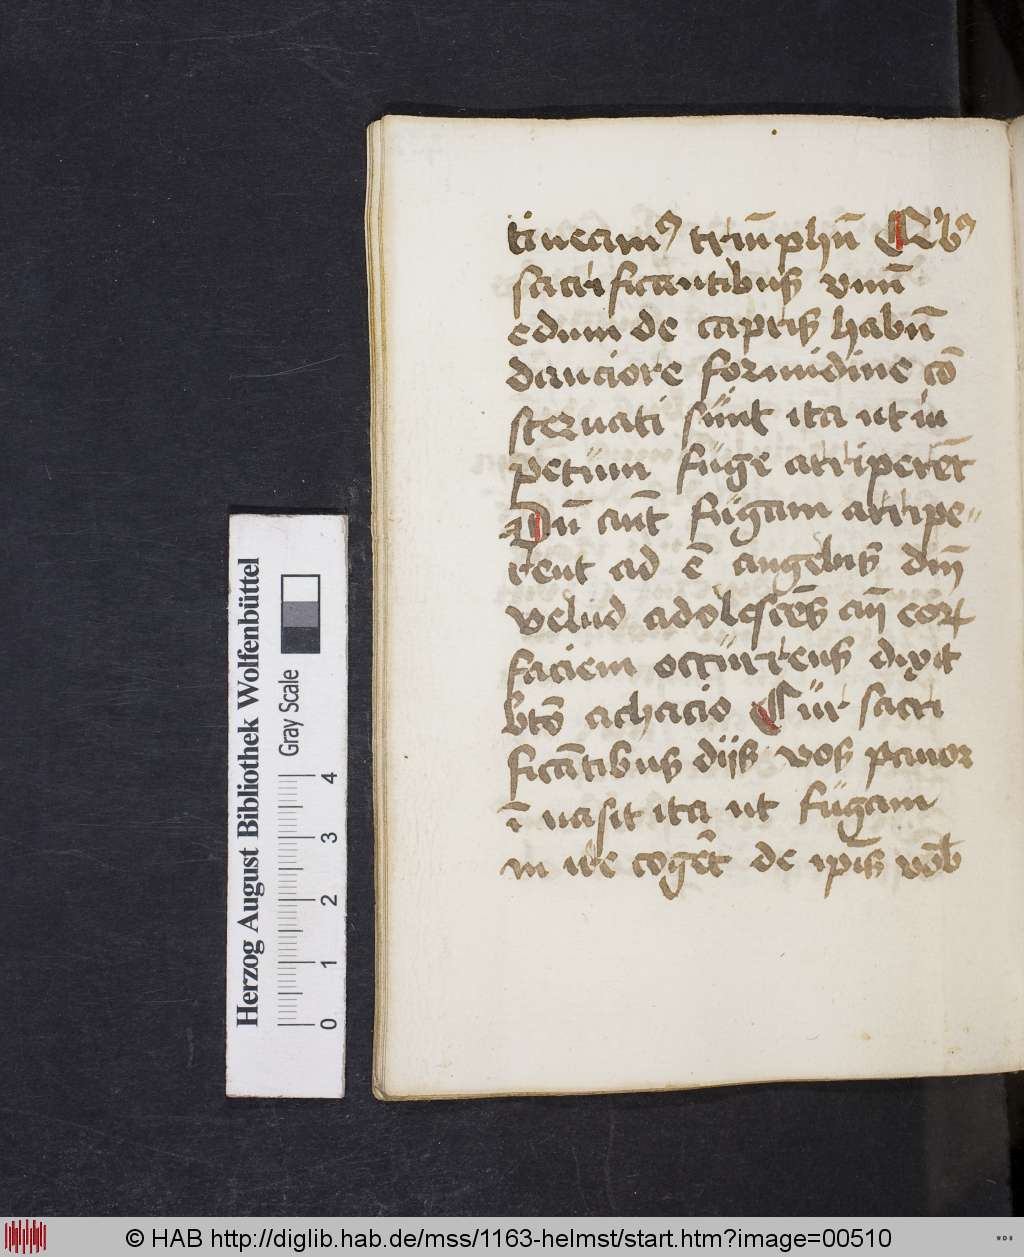 tineamꝰ triūphū Q'bꝰ
sacrificantibus vnū
edum de capris habūt
dauciore formidine cō
sternati sunt ita ut in
petum fuge arriperēt
Dū aūt fugam arripe〃
rent ad ē angelus dnī
velud adolescēs an̄ eorꝝ
faciem occurrens dixit
btō achacio Cur sacri
ficātibus dijs vos pauor
ī uasit ita ut fugam
in ire cogēt de ip̄is vob̄
Herzog August Bibliothek Wolfenbüttel
Gray Scale
0 1 2 3 4
© HAB http://diglib.hab.de/mss/1163-helmst/start.htm?image=00510